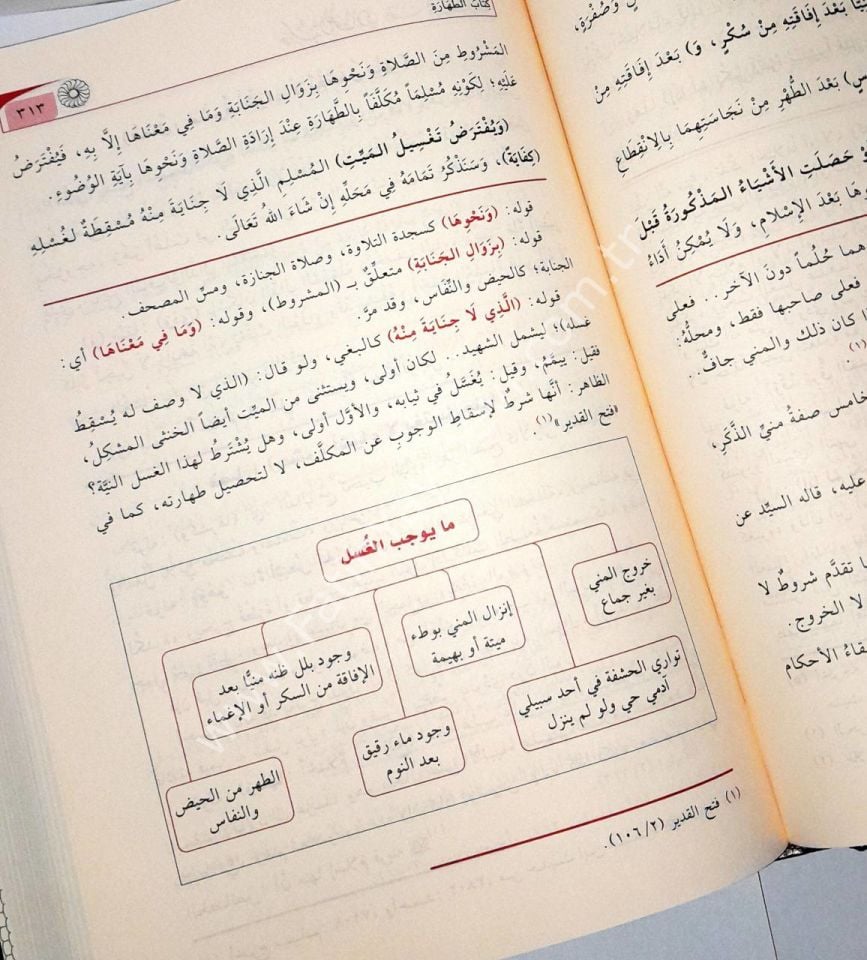 كتاب الطهارة
٣١٣
المَشْرُوطِ مِنَ الصَّلَاةِ وَنَحْوِهَا بِزَوَالِ الجَنَابَةِ وَمَا فِي مَعْنَاهَا إِلَّا بِهِ، فَيُفْتَرَضُ
عَلَيْهِ؛ لِكَوْنِهِ مُسْلِمَاً مُكَلَّفَاً بِالطَّهَارَةِ عِنْدَ إِرَادَةِ الصَّلَاةِ وَنَحْوِهَا بِآيَةِ الوُضُوءِ.
(وَيُفْتَرَضُ تَغْسِيلُ المَيِّتِ) المُسْلِمِ الَّذِي لَا جَنَابَةَ مِنْهُ مُسْقِطَةٌ لِغُسْلِهِ
(كِفَايَةً)، وَسَنَذْكُرُ تَمَامَهُ فِي مَحَلِّهِ إِنْ شَاءَ اللهُ تَعَالَى.
قوله: (وَنَحْوِهَا) كسجدة التلاوة، وصلاة الجنازة، ومسِّ المصحف.
قوله: (بِزَوَالِ الجَنَابَةِ) متعلِّقٌ بـ (المشروط)، وقوله: (وَمَا فِي مَعْنَاهَا) أي:
الجنابة؛ كالحيض والنِّفَاس، وقد مرَّ.
قوله: (الَّذِي لَا جِنَايَةَ مِنْهُ) كالبغي، ولو قال: (الذي لا وصف له يُسْقِطُ
غسله)؛ ليشمل الشهيد.. لكان أولى، ويستثنى من الميِّت أيضاً الخنثى المشكِلُ،
فقيل: ييمَّمُ، وقيل: يُغَسَّلُ في ثيابه، والأوَّل أولى، وهل يُشْتَرطُ لهذا الغسل النيَّة؟
الظاهر: أنَّها شرطٌ لإسقاطِ الوجوبِ عن المكلَّف، لا لتحصيل طهارته، كما في
«فتح القدير»(١).
ما يوجب الغُسل
خروج المني
بغير جماع
تواري الحشفة في أحد سبيلي
آدمي حي ولو لم ينزل
إنزال المني بوطء
ميتة أو بهيمة
وجود ماء رقيق
بعد النوم
وجود بلل ظنه منيًّا بعد
الإفاقة من السكر أو الإغماء
الطهر من الحيض
والنفاس
(١) فتح القدير (١٠٦/٢).
بَعْدَ إِفَاقَتِهِ مِنْ سُكْرٍ، وَ) بَعْدَ إِفَاقَتِهِ مِنْ
بَعْدَ الطُّهْرِ مِنْ نَجَاسَتِهِمَا بِالِانْقِطَاعِ
حَصَلَتِ الأَشْيَاءُ المَذْكُورَةُ قَبْلَ
بَعْدَ الإِسْلَامِ، وَلَا يُمْكِنُ أَدَاءُ
هما حُلُماً دونَ الآخر.. فعلى
فعلى صاحبها فقط، ومحلُّهُ:
كان ذلك والمني جافٌّ..
(١).
خامس صفةُ منيِّ الذَّكَرِ،
عليه، قاله السيِّد عن
تقدَّم شروطٌ لا
لا الخروج.
الأحكام